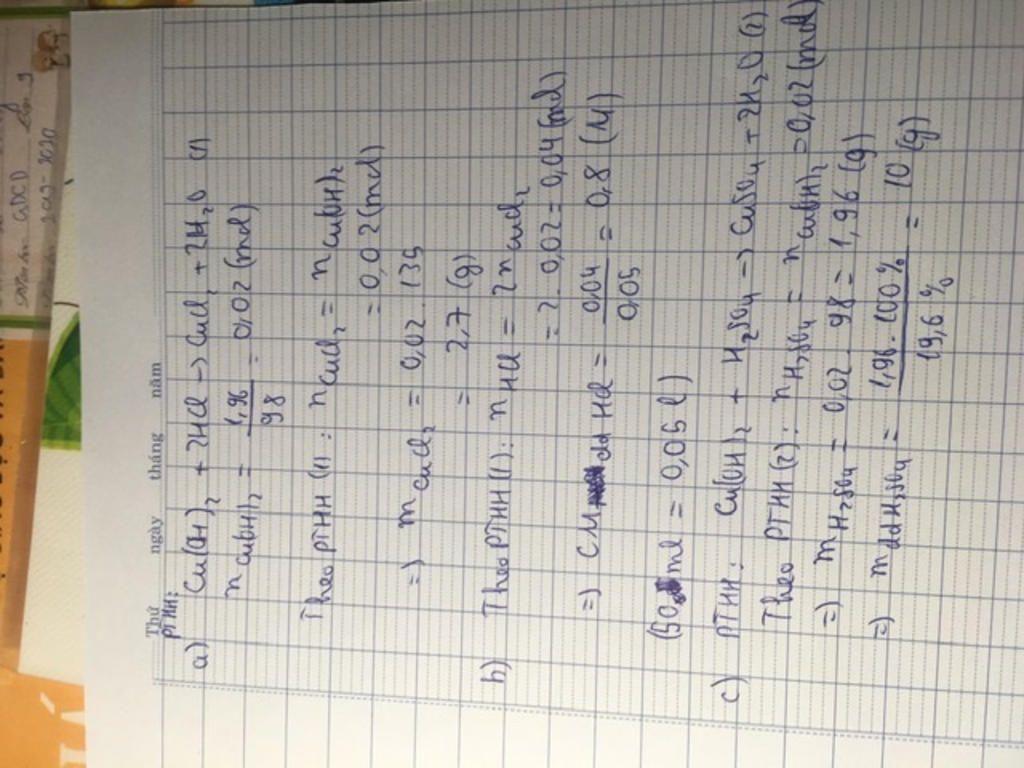 Thứ ngày tháng năm
PTHH:
a) Cu(OH)₂ + 2HCl → CuCl₂ + 2H₂O (1)
n Cu(OH)₂ = 1,96/98 = 0,02 (mol)
Theo PTHH (1): n CuCl₂ = n Cu(OH)₂
= 0,02 (mol)
=) m CuCl₂ = 0,02 . 135
= 2,7 (g)
b) Theo PTHH (1): n HCl = 2n CuCl₂
= 2. 0,02 = 0,04 (mol)
=) CM dd HCl = 0,04/0,05 = 0,8 (M)
(50 ml = 0,05 l)
c) PTHH: Cu(OH)₂ + H₂SO₄ → CuSO₄ + 2H₂O (2)
Theo PTHH (2): n H₂SO₄ = n Cu(OH)₂ = 0,02 (mol)
=) m H₂SO₄ = 0,02 . 98 = 1,96 (g)
=) m dd H₂SO₄ = 1,96. 100%/19,6% = 10 (g)